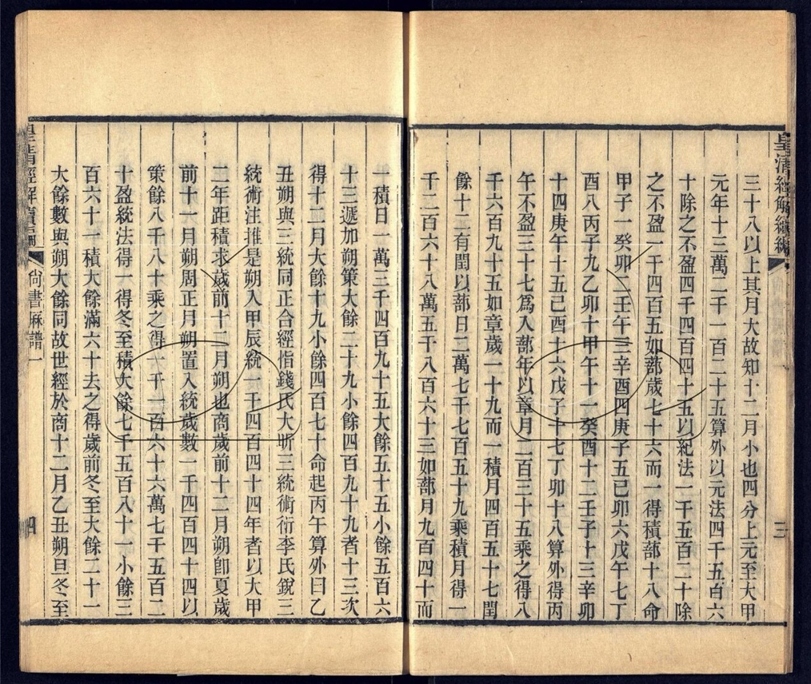 皇清經解續編
三
三十八以上其月大故知十二月小也四分上元至大甲
元年十三萬二千一百二十五算外以元法四千五百六
十除之不盈四千四百四十五以紀法一千五百二十除
之不盈一千四百五如蔀歲七十六而一得積蔀十八命
甲子一癸卯二壬午三辛酉四庚子五已卯六戊午七丁
酉八丙子九乙卯十甲午十一癸酉十二壬子十三辛卯
十四庚午十五己酉十六戊子十七丁卯十八算外得丙
午不盈三十七爲入蔀年以章月二百三十五乘之得八
千六百九十五如章歲一十九而一積月四百五十七閏
餘十二有閏以蔀日二萬七千七百五十九乘積月得一
千二百六十八萬五千八百六十三如蔀月九百四十而
一積日一萬三千四百九十五大餘五十五小餘五百六
十三遞加朔策大餘二十九小餘四百九十九者十三次
得十二月大餘十九小餘四百七十命起丙午算外曰乙
丑朔與三統同正合經恉錢氏大昕三統術衍李氏銳三
統術注推是朔入甲辰統一千四百四十四年者以大甲
二年距積求歲前十二月朔也商歲前十二月朔卽夏歲
前十一月朔周正月朔置入統歲數一千四百四十四以
策餘八千八十乘之得一千一百六十六萬七千五百二
十盈統法得一得冬至積大餘七千五百八十一小餘三
百六十一積大餘滿六十去之得歲前冬至大餘二十一
大餘數與朔大餘同故世經於商十二月乙丑朔旦冬至
皇清經解續編
尚書厤譜一
四